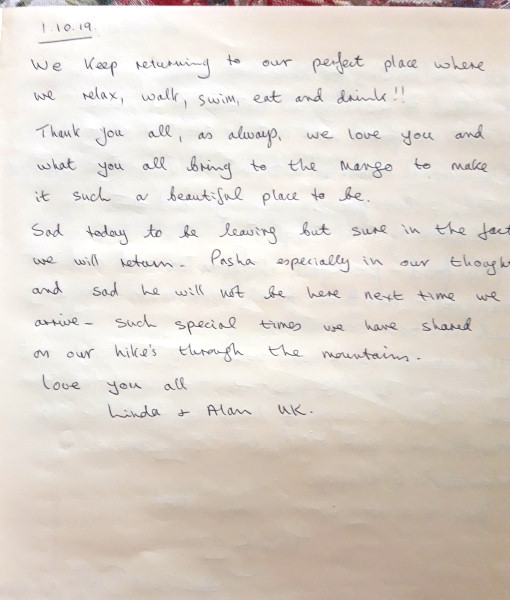 1.10.19.
We Keep returning to our perfect place where
we relax, walk, swim, eat and drink!!
Thank you all, as always, we love you and
what you all bring to the Mango to make
it such a beautiful place to be.
Sad today to be leaving but sure in the fact
we will return. Pasha especially in our though
and sad he will not be here next time we
arrive - such special times we have shared
on our hike's through the mountains.
Love you all
Linda + Alan UK.